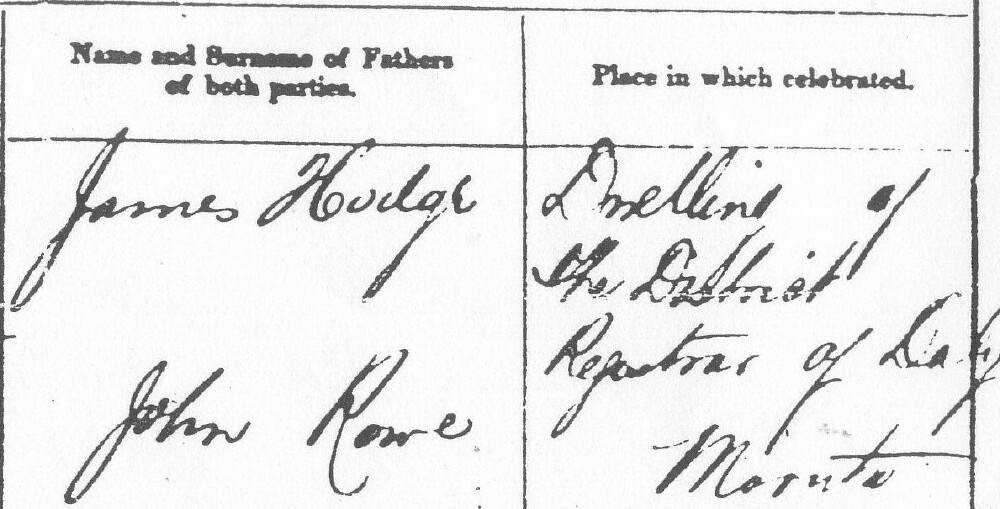 Name and Surname of Fathers
of both parties.
Place in which celebrated.
James Hodge
John Rowe
Dwelling of
the District
Registrar of Daly
Moonta